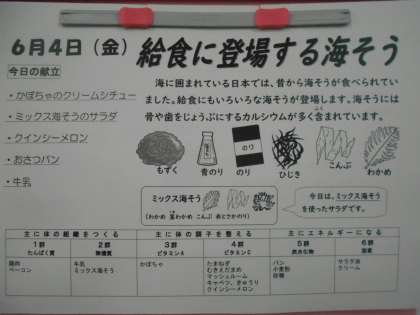 6月4日(金) 給食に登場する海そう
今日の献立
・かぼちゃのクリームシチュー
・ミックス海そうのサラダ
・クインシーメロン
・おさつパン
・牛乳
海に囲まれている日本では、昔から海そうが食べられてい
ました。給食にもいろいろな海そうが登場します。海そうには
骨や歯をじょうぶにするカルシウムが多く含まれています。
もずく 青のり のり ひじき こんぶ わかめ
ミックス海そう
(わかめ 茎わかめ こんぶ 赤とさかのり)
今日は、ミックス海そう
を使ったサラダです。
主に体の組織をつくる 主に体の調子を整える 主にエネルギーになる
1群 2群 3群 4群 5群 6群
たんぱく質 無機質 ビタミンA ビタミンC 炭水化物 脂肪
鶏肉 牛乳 かぼちゃ たまねぎ パン サラダ油
ベーコン ミックス海そう むきえだまめ 小麦粉 クリーム
マッシュルーム 砂糖
キャベツ、きゅうり
クインシーメロン